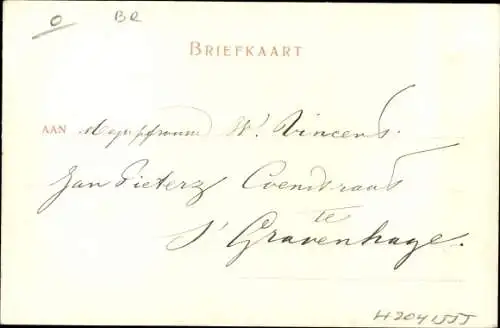 O BR
BRIEFKAART
AAN Mejuffrouw W. Vincent.
Jan Pieterz Coenstraat
te
s' Gravenhage.
H204